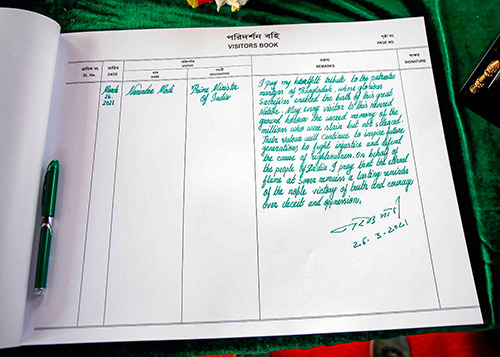 পরিদর্শন বহি
VISITORS BOOK
পৃষ্ঠা নং
PAGE NO.
ক্রমিক নং
SL. No.
তারিখ
DATE
পরিদর্শক
VISITOR
নাম
NAME
পদবী
DESIGNATION
মন্তব্য
REMARKS
স্বাক্ষর
SIGNATURE
March
26
2021
Narendra Modi
Prime Minister
Of India
I pay my heartfelt tribute to the patriotic
martyrs of Bangladesh, whose glorious
Sacrifices enabled the birth of this great
Nation. May every visitor to this revered
ground honour the sacred memory of the
millions who were slain but not silenced.
Their valour will Continue to inspire future
generations to fight injustice and defend
the cause of righteousness. On behalf of
the people of India I pray that the eternal
flame at Savar remains a lasting reminder
of the noble victory of truth and courage
over deceit and oppression.
26-3-2021